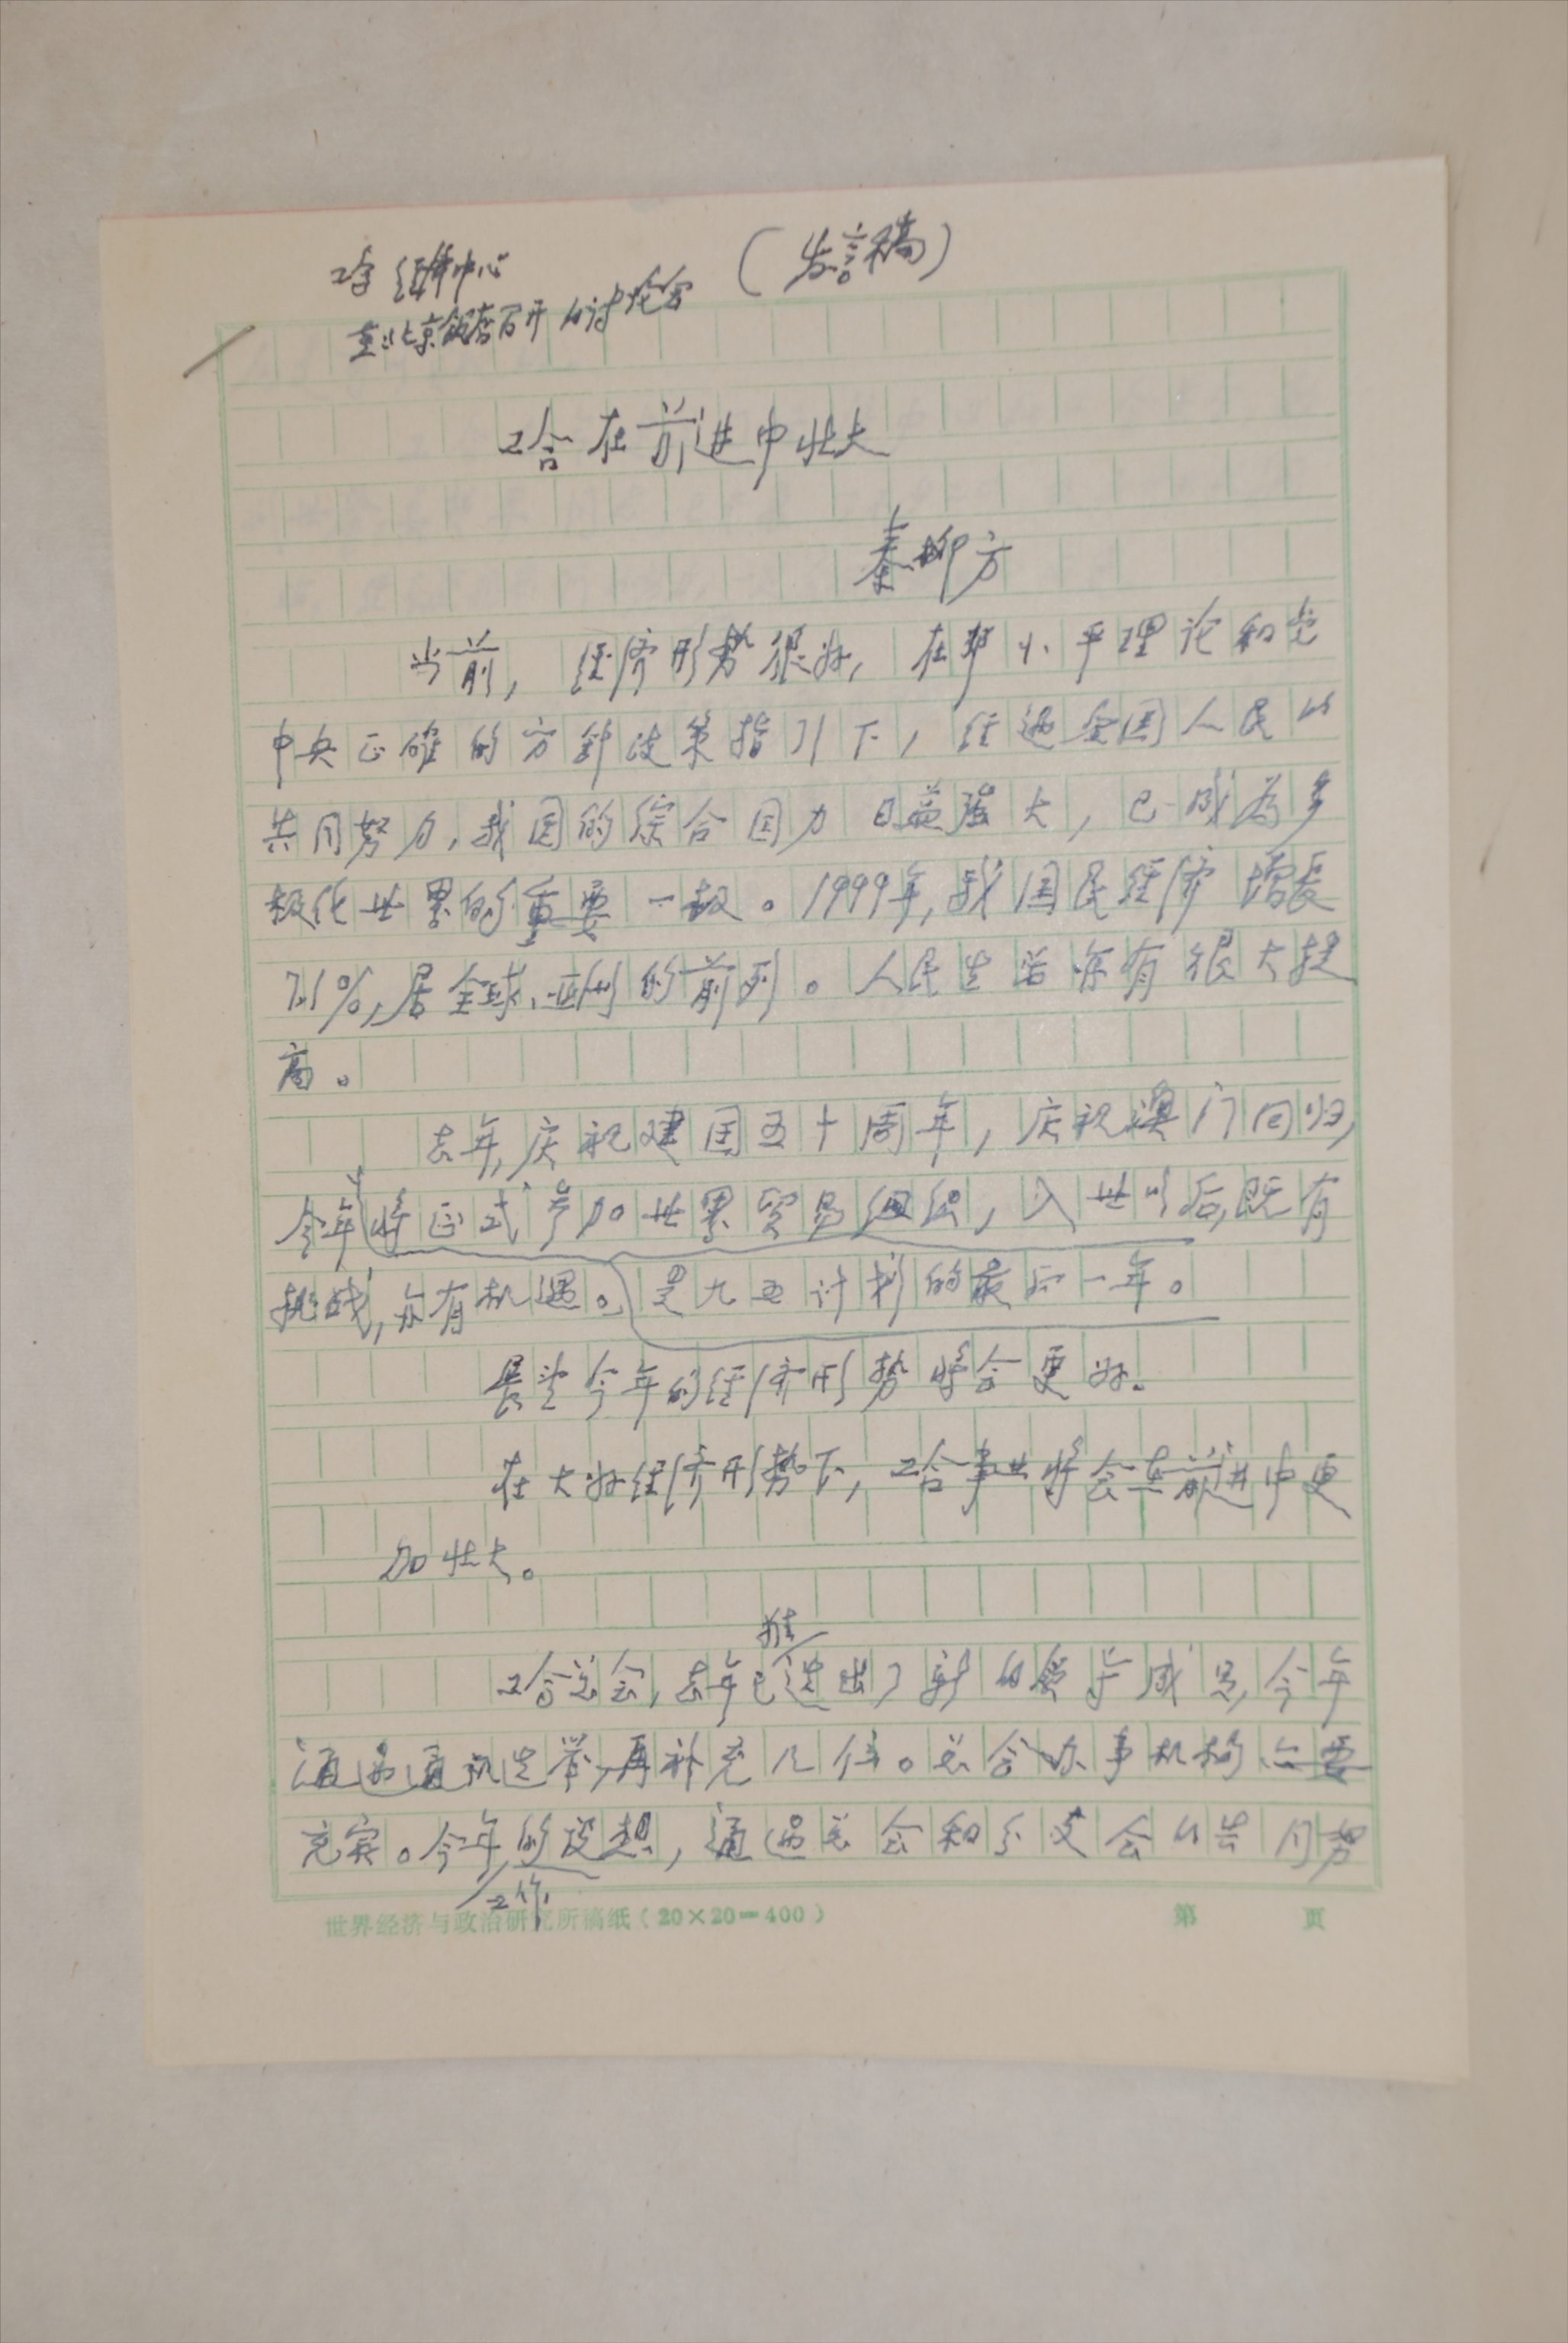 工合 经济中心
在北京饭店召开的讨论会
(发言稿)
工合在前进中壮大
秦柳方
当前，经济形势很好，在邓小平理论和党
中央正確的方針政策指引下，经过全国人民的
共同努力，我国的综合国力日益强大，已成为多
极化世界的重要一极。1999年，我国民经济增长
7.1%，居全球、亚洲的前列。人民生活亦有很大提
高。
去年，庆祝建国五十周年，庆祝澳门回归，
今年将正式参加世界贸易组织，入世以后，既有
挑战，亦有机遇。是九五计划的最后一年。
展望今年的经济形势将会更好。
在大好经济形势下，工合事业将会在前进中更
加壮大。
推
工合总会，去年已选出了新的领导成员，今年
通过通讯选举，再补充几位。总会办事机构亦要
充实。今年的设想，通过总会和分支会的共同努
工作
世界经济与政治研究所稿纸（20×20=400）
第 页